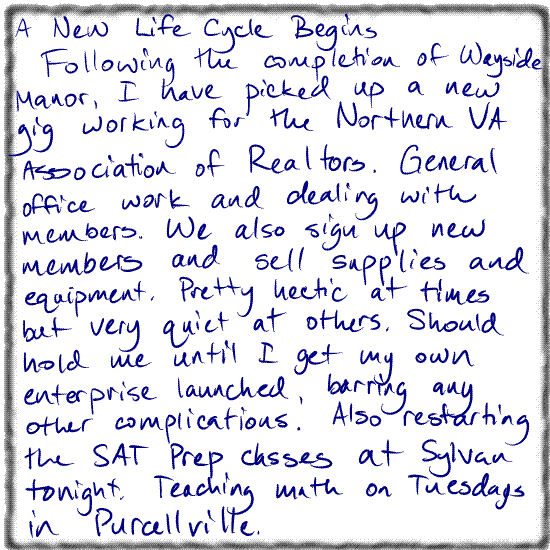 A New Life Cycle Begins
Following the completion of Wayside
Manor, I have picked up a new
gig working for the Northern VA
Association of Realtors. General
office work and dealing with
members. We also sign up new
members and sell supplies and
equipment. Pretty hectic at times
but very quiet at others. Should
hold me until I get my own
enterprise launched, barring any
other complications. Also restarting
the SAT Prep classes at Sylvan
tonight. Teaching math on Tuesdays
in Purcellville.